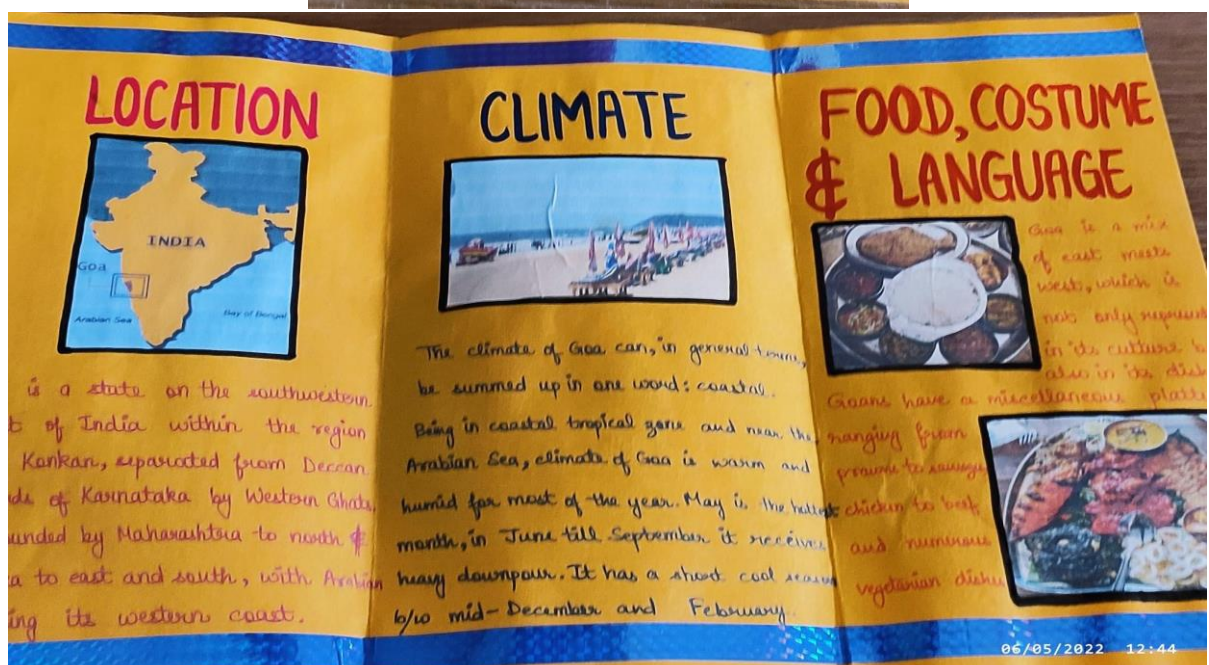 LOCATION
INDIA
Goa
Arabian Sea
Bay of Bengal
is a state on the southwestern
of India within the region
Konkan, separated from Deccan
of Karnataka by Western Ghats,
by Maharashtra to north &
to east and south, with Arabian
its western coast.
CLIMATE
The climate of Goa can, in general terms,
be summed up in one word: coastal.
Being in coastal tropical zone and near the
Arabian Sea, climate of Goa is warm and
humid for most of the year. May is the hottest
month, in June till September it receives
heavy downpour. It has a short cool season
b/w mid-December and February.
FOOD, COSTUME
& LANGUAGE
Goa is a mix
of east meets
west, which is
not only
in its culture
also in its
Goans have a miscellaneous
ranging from
prawns to sausage
chicken to beef
and numerous
vegetarian dishes
06/05/2022 12:44